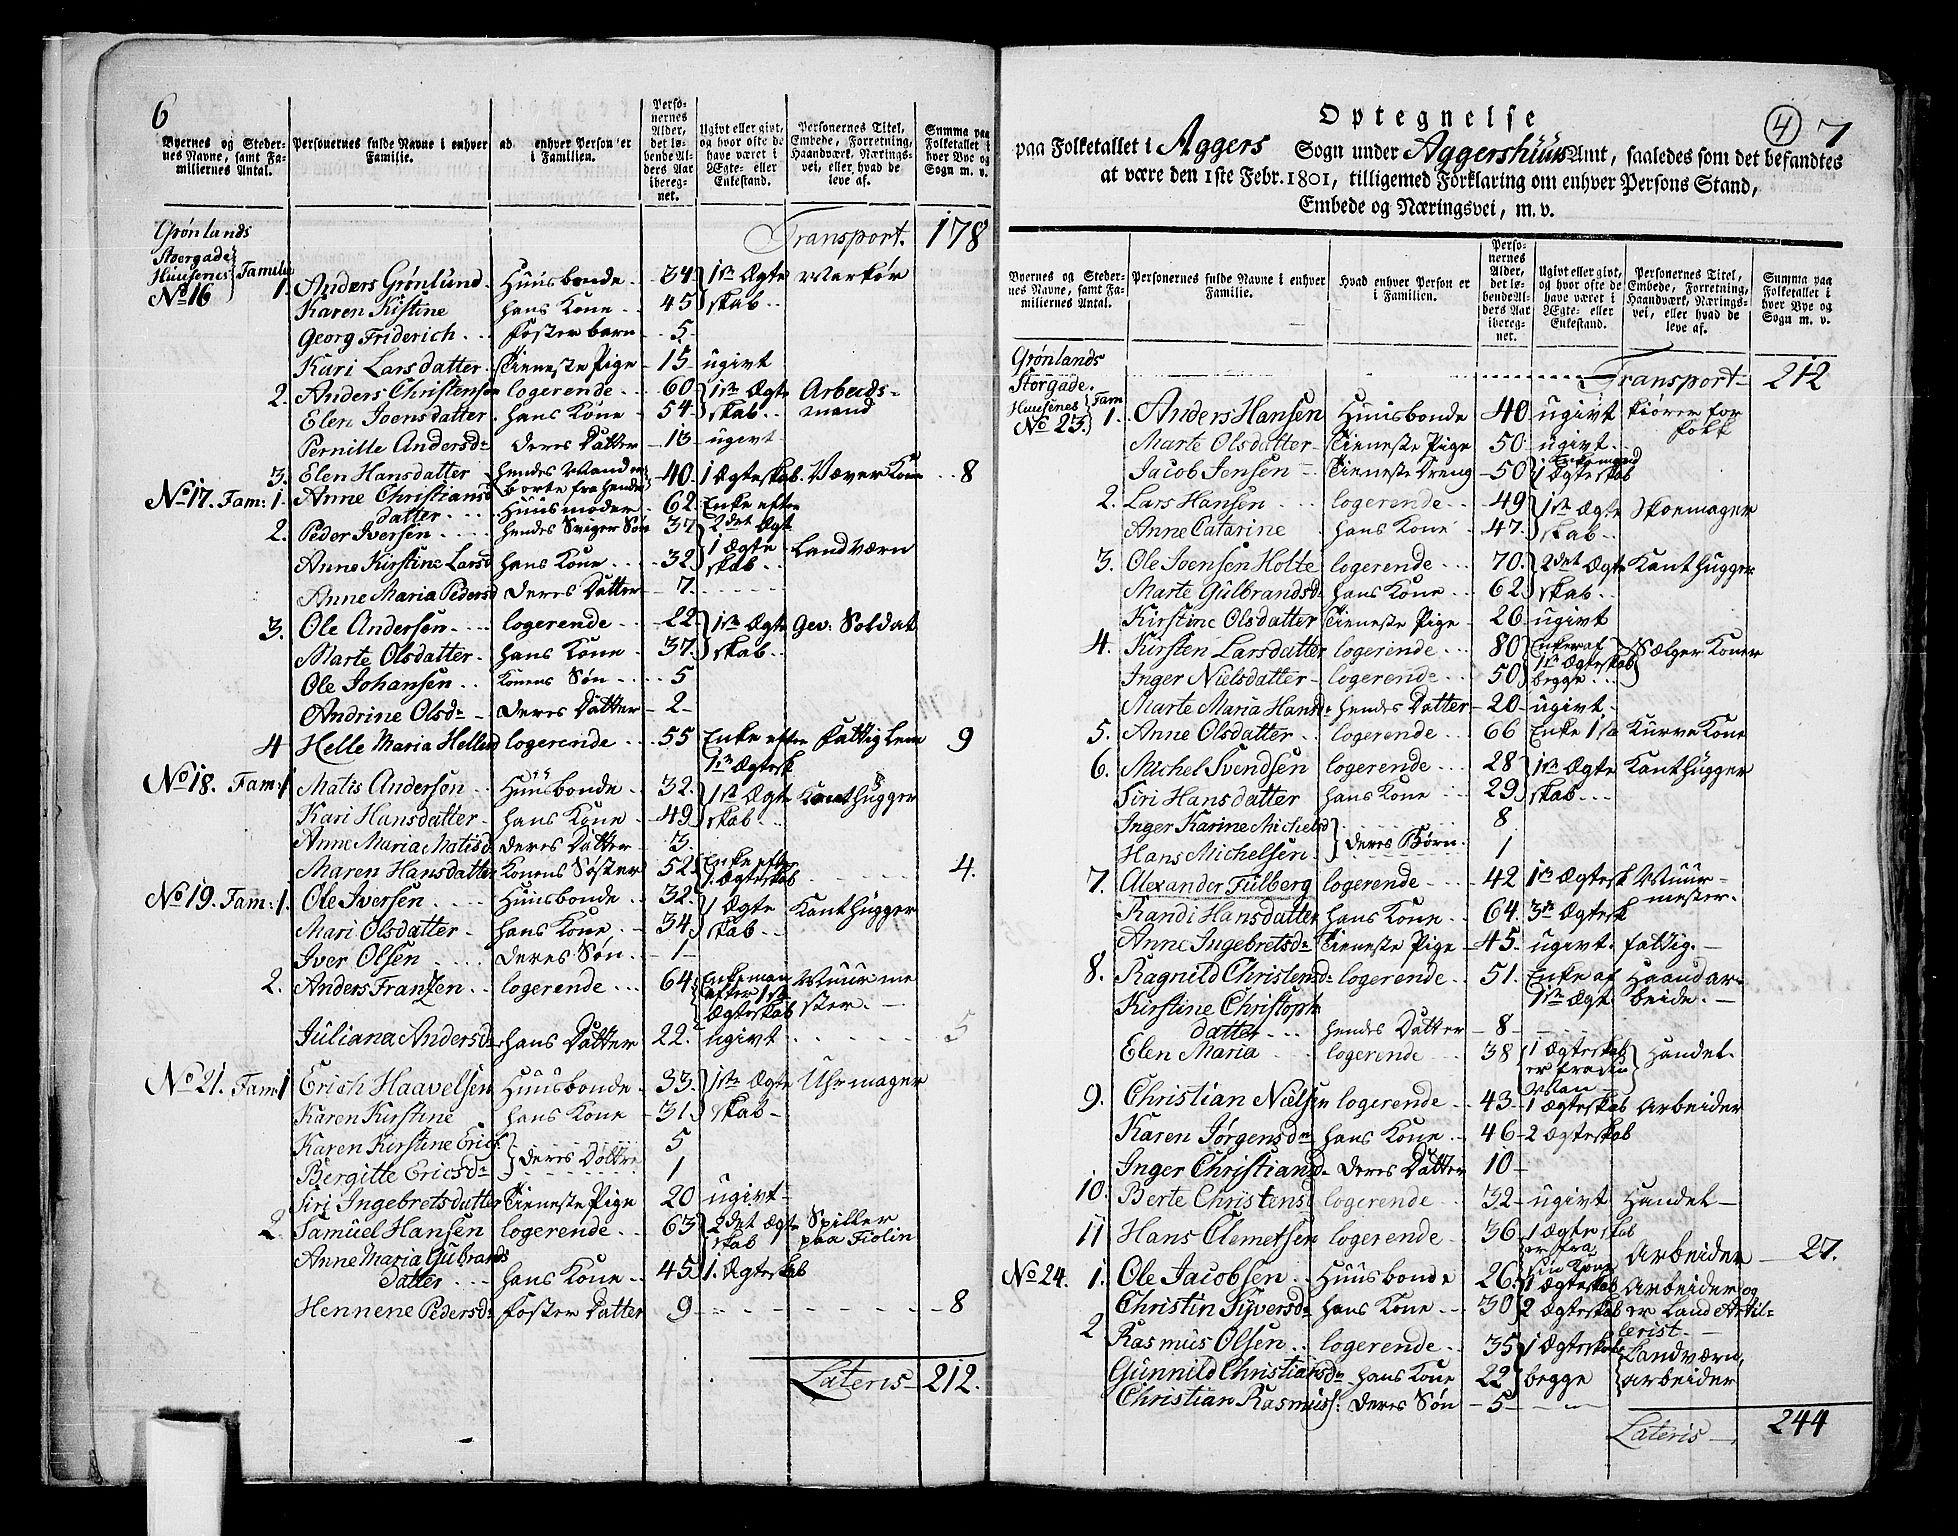 6
Byernes og Steder-
nes Navne, samt Fa-
miliernes Antal.
Personernes fulde Navne i enhver
Familie.
ad enhver Person er
i Familien.
Perso-
nernes
Alder,
det lø-
bende Al-
ders Aar
ibereg-
net.
Ugivt eller givt,
og hvor ofte de
have været i
Ægte- eller
Enkestand.
Personernes Titel,
Embede, Forretning,
Haandværk, Nærings-
vei, eller hvad de
leve af.
Summa paa
Folketallet i
hver Bye og
Sogn m. v.
Grønlands
Stoergade
Huusenes Familie
Transport. 178
No 16 1. Anders Grønlund. Huusbonde 34 1ste Ægte Markør
Karen Kistine hans Kone 45 skab
Georg Friderich foster barn 5
Kari Larsdatter Tieneste Pige 15 ugivt
2. Anders Christensen logerende 60 1ste Ægte Arbeids-
Elen Joensdatter hans Kone 54 skab mand
Pernille Andersdr deres Datter 13 ugivt
3. Elen Hansdatter hendes Mand er borte fra hende 40 1 Ægteskab Væver Kone 8
No 17. Fam: 1. Anne Christiansdatter Huusmoder 62 Enke efter 2det Ægt
2. Peder Iversen hendes Sviger Søn 37 1 Ægte Landværn
Anne Kirstine Larsd hans Kone 32 skab
Anne Maria Pedersd deres Datter 7
3. Ole Andersen logerende 22 1ste Ægte Gev: Soldat
Marte Olsdatter hans Kone 37 skab
Ole Johansen Konens Søn 5
Andrine Olsdr deres Datter 2
4 Helle Maria Hellesd logerende 55 Enke efter 1ste Ægtesk Fattig Lem 9
No 18. Fam: 1 Matis Anderson Huusbonde 32. 1ste Ægte Kanthugger
Kari Hansdatter hans Kone 49 skab
Anne Maria Matisd deres Datter 3.
Maren Hansdatter Konens Søster 52 Enke efter 1. Ægteskab 4.
No 19. Fam: 1. Ole Iversen Huusbonde 32. 1 Ægte Kanthugger
Mari Olsdatter hans Kone 34 skab
Iver Olsen deres Søn 1
2. Anders Franzen logerende 64 Enkeman efter 1ste Ægteskab Muurmester
Juliana Andersd hans Datter 22 ugivt 5
No 21. Fam: 1 Erich Haavelsen Huusbonde 33 1ste Ægte Uhrmager
Karen Kirstine hans Kone 31 skab
Karen Kirstine Erics 5
Bergitte Ericsdr deres Døttre 1
Siri Ingebretsdatter Tieneste Pige 20 ugivt
2. Samuel Hansen logerende 63 2det Ægte Spiller
skab paa Fiolin
Anne Maria Gulbrands
datter hans Kone 45 1. Ægteskab
Hennene Pedersd foster Datter 9 8
Lateris 212.
4 7
Optegnelse
paa Folketallet i Aggers Sogn under Aggershuus Amt, saaledes som det befandtes
at være den 1ste Febr. 1801, tilligemed Forklaring om enhver Persons Stand,
Embede og Næringsvei, m. v.
Byernes og Steder-
nes Navne, samt Fa-
miliernes Antal.
Personernes fulde Navne i enhver
Familie.
Hvad enhver Person er
i Familien.
Perso-
nernes
Alder,
det lø-
bende Al-
ders Aar
ibereg-
net.
Ugivt eller givt,
og hvor ofte de
have været i
Ægte- eller
Enkestand.
Personernes Titel,
Embede, Forretning,
Haandværk, Nærings-
vei, eller hvad de
leve af.
Summa paa
Folketallet i
hver Bye og
Sogn m. v.
Grønlands
Storgade.
Huusenes Fam
Transport 212
No 23. 1. Anders Hansen Huusbonde 40 ugivt kiører for folk
Marte Olsdatter Tieneste Pige 50 ugivt
Jacob Jensen Tieneste Dreng 50 Enkemand 1 Ægteskab
2. Lars Hansen logerende 49 1ste Ægte Skoemager
Anne Catarine hans Kone 47. skab
3. Ole Joensen Holte logerende 70. 2det Ægte Kanthugger
Marte Gulbrandsd hans Kone 62 skab
Kirstine Olsdatter Tieneste Pige 26 ugivt
4. Kirsten Larsdatter logerende 80 Enker af Sælger Koner
Inger Nielsdatter logerende 50 1ste Ægteskab begge
Marte Maria Hansd hendes Datter 20 ugivt
5. Anne Olsdatter logerende 66 Enke Kurve Kone
6. Michel Svendsen logerende 28 1ste Ægte Kanthugger
Siri Hansdatter hans Kone 29 skab
Inger Karine Michelsd 8
Hans Michelsen deres Børn 1
7. Alexander Fulberg logerende 42 1ste Ægtesk Muur-
mester.
Randi Hansdatter hans Kone 64. 3die Ægtesk
Anne Ingebretsdr Tieneste Pige 45. ugivt. fattig.
8. Ragnild Christensdr logerende 51. Enke af Haandar-
1ste Ægt beide.
Kirstine Christoph
datter hendes Datter 8
Elen Maria logerende 38 1 Ægteskab er fra sin Man Handel
9. Christian Nielsen logerende 43 1 Ægteskab Arbeider
Karen Jørgensdr hans Kone 46 2 Ægteskab
Inger Christiand deres Datter 10
10. Berte Christensd logerende 32 ugivt Handel
11 Hans Clemetsen logerende 36 1 Ægteskab er fra sin Kone Arbeider 27.
No 24. 1. Ole Jacobsen Huusbonde 26 1 Ægteskab Arbeider og
Christin Syversdr hans Kone 30 2 Ægteskab er Land Artil-
lerist
2 Rasmus Olsen logerende 35 1 Ægteskab Landværn,
Gunnild Christiansdr hans Kone 22 begge arbeider
Christian Rasmus: deres Søn 5
Lateris 244